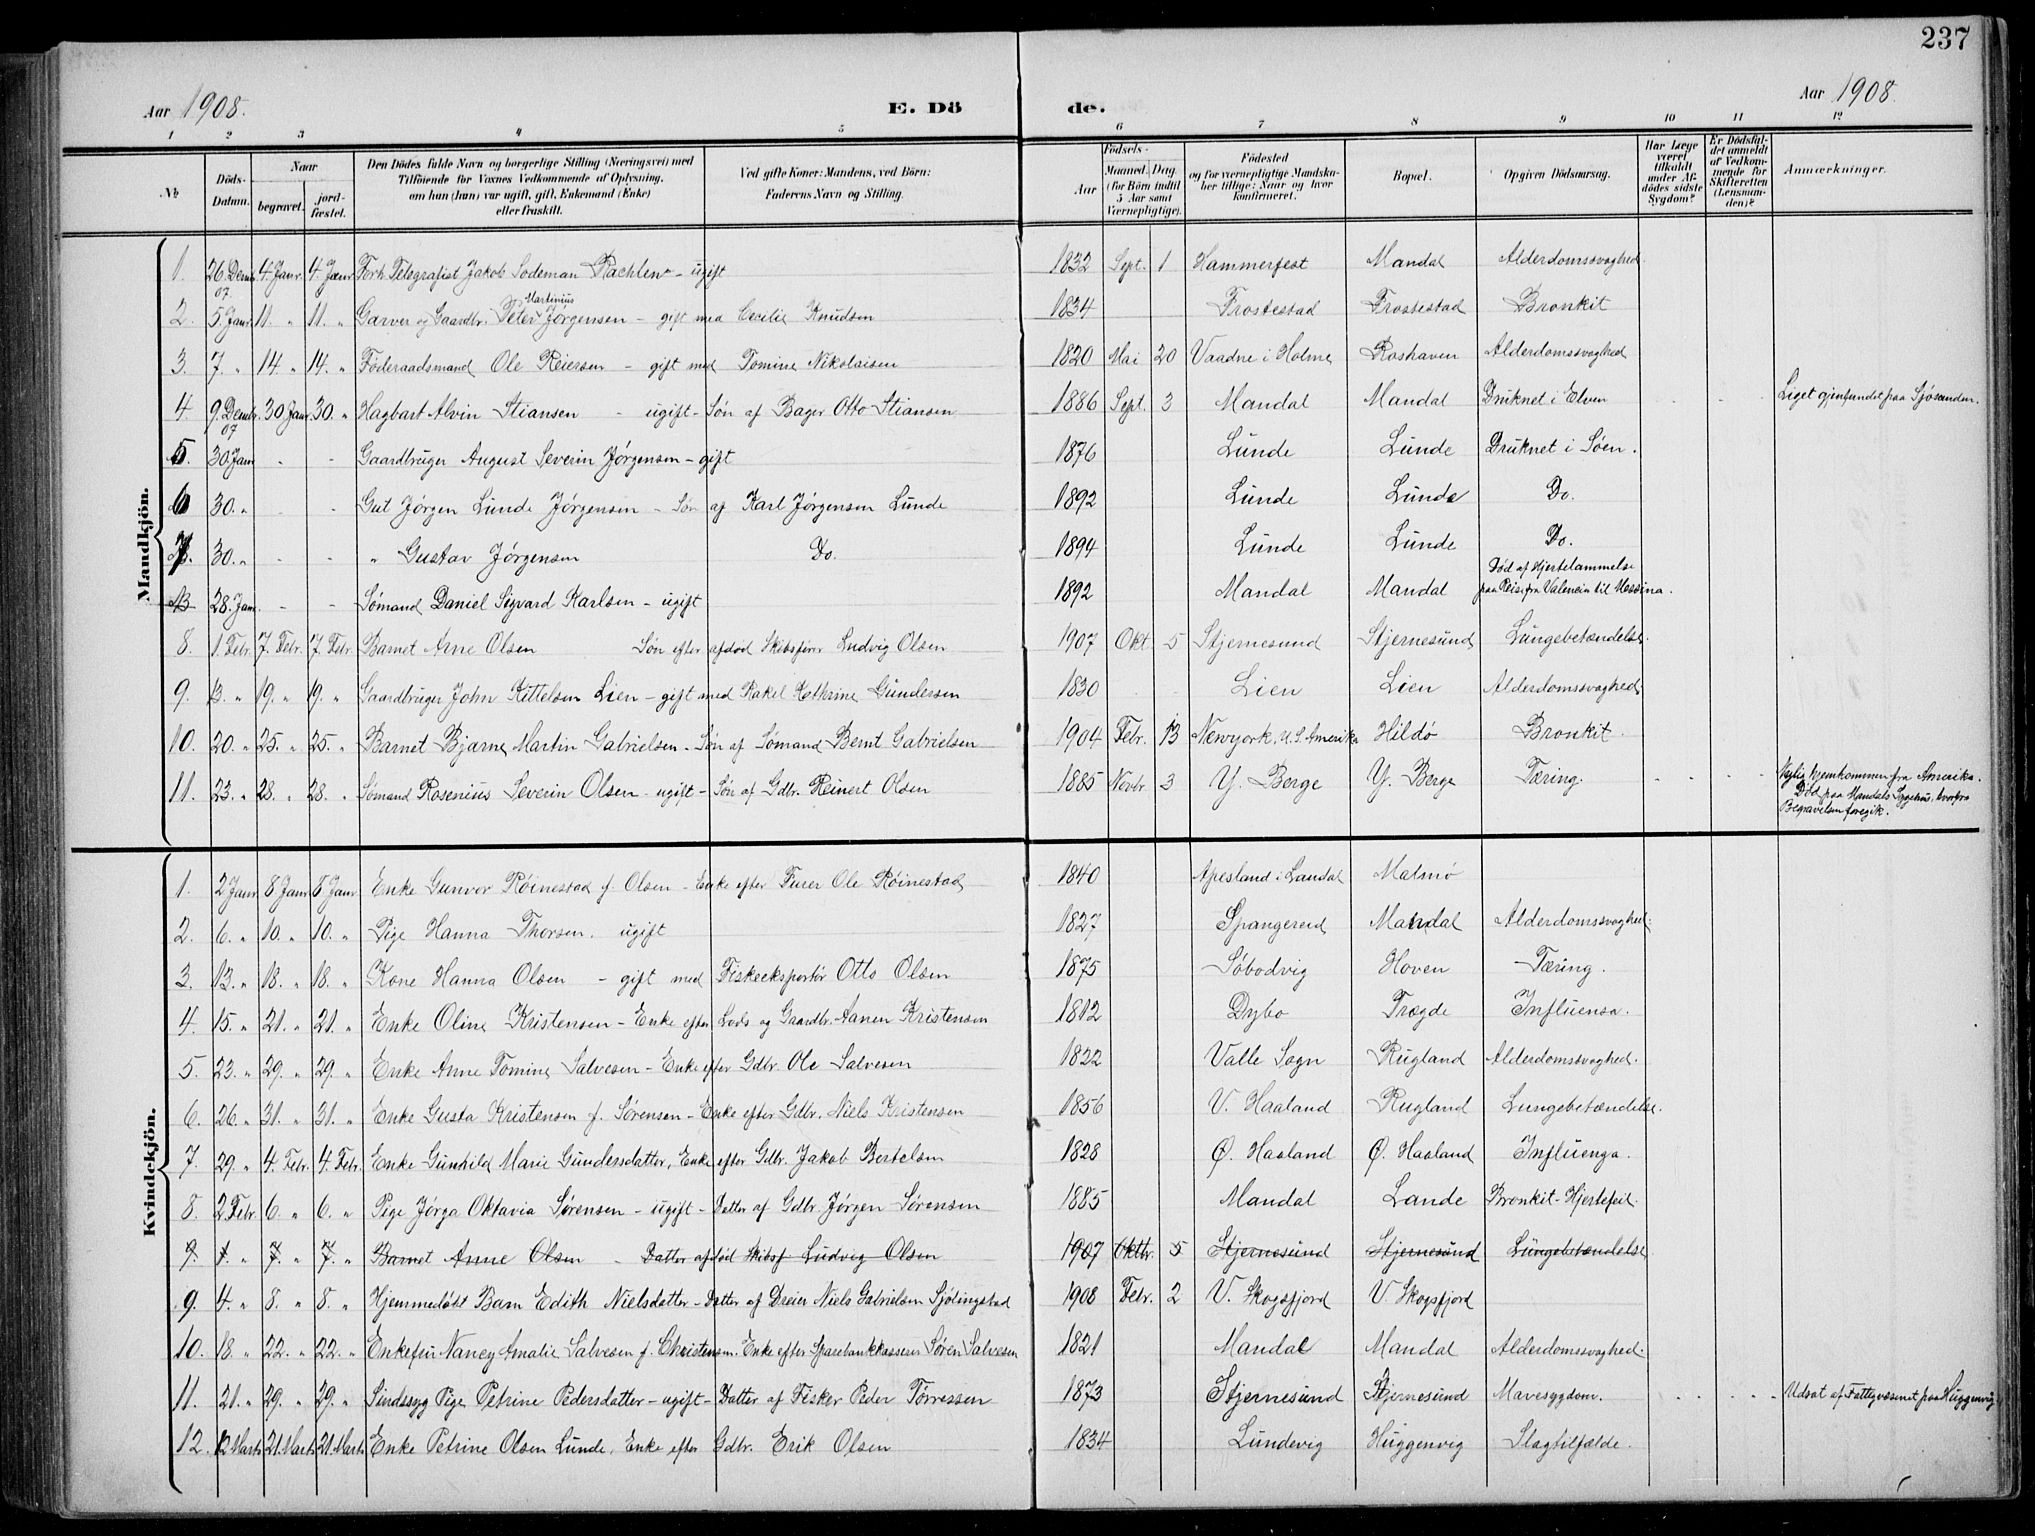 237
Aar 1908. E. Dö de. Aar 1908.
1 2 3 4 5 6 7 8 9 10 11 12
№ Döds-Datum. Naar begravet. jord-fæstet. Den Dödes fulde Navn og borgerlige Stilling (Næringsvei) med Tilföiende for Voxnes Vedkommende af Oplysning. om han (hun) var ugift, gift, Enkemand (Enke) eller fraskilt. Ved gifte Koner: Mandens, ved Börn: Faderens Navn og Stilling. Födsels- Aar Maaned. Dag. (for Börn indtil 5 Aar samt Værnepligtige). Födested og for værnepligtige Mandskaber tillige: Naar og hvor konfirmeret. Bopæl. Opgiven Dödsaarsag. Har Læge været tilkaldt under Afdödes sidste Sygdom? Er Dödsfaldet anmeldt af Vedkommende for Skifteretten (Lensmanden)? Anmærkninger.
Mandkjön.
1. 26 Dembr. 07 4 Janr. 4 Janr. Forh. Telegrafist Jakob Sodeman Rachlew - ugift 1832 Sept. 1 Hammerfest Mandal Alderdomssvaghed.
2. 5 Janr. 11. " 11. " Garver og Gaardbr. Peter Martinius Jørgensen - gift med Cecilie Knudsen 1834 Frostestad Frostestad Bronkit
3. 7. " 14. " 14. " Föderaadsmand Ole Reiersen - gift med Tomine Nikolaisen 1820 Mai 20 Vaadne i Holme Roshaven Alderdomssvaghed
4 9. Dembr. 07 30 Janr. 30. " Hagbart Alvin Stiansen - ugift - Søn af Bager Otto Stiansen 1886 Sept. 3 Mandal Mandal Druknet i Elven - - Liget gjenfundet paa Sjøsanden.
5. 30. Jan - - Gaardbruger August Severin Jørgensen - gift 1876 Lunde Lunde Druknet i Søen.
6 30. " - - Gut Jørgen Lunde Jørgensen - Søn af Karl Jørgensen Lunde 1892 Lunde Lunde Do.
7. 30. " - - " Gustav Jørgensen Do. 1894 Lunde Lunde Do.
28. Jan. - - Sømand Daniel Sigvard Karlsen - ugift 1892 Mandal Mandal Död af Hjertelammelse paa Reise fra Valencia til Messina.
8. 1. Febr. 7. Febr. 7 Febr. Barnet Arne Olsen Søn efter afdød Skibsfører Ludvig Olsen 1907 Okt. 5 Stjernesund Stjernesund Lungebetændelse.
9. 13. " 19. " 19. " Gaardbruger John Kittelsen Lien - gift med Rakel Kathrine Gundersen 1830 Lien Lien Alderdomssvaghed
10. 20. " 25. " 25. " Barnet Bjarne Martin Gabrielsen - Søn af Sømand Bernt Gabrielsen 1904 Febr. 13 Newyork, U.S. Amerika Hildø Bronkit.
11. 23. " 28. " 28. " Sømand Rosenius Severin Olsen - ugift - Søn af Gdbr. Reinert Olsen 1885 Novbr. 3 Y. Berge Y. Berge Tæring. - - - Nylig hjemkommen fra Amerika. Död paa Mandals Sygehus, hvorfra Begravelsen foregik.
Kvindekjön.
1. 2 Janr. 8 Janr. 8 Janr. Enke Gunvor Røinestad f. Olsen - Enke efter Furer Ole Røinestad 1840 Apesland i Laudal Malmø
2. 6. " 10. " 10. " Pige Hanna Thorsen. ugift 1827 Spangereid Mandal Alderdomssvaghed.
3. 13. " 18. " 18. " Kone Hanna Olsen - gift med Fiskeeksportør Otto Olsen 1875 Söbodvig Hoven Tæring.
4. 15. " 21. " 21. " Enke Oline Kristensen - Enke efter Lods og Gaardbr. Aanen Kristensen 1812 Dybo Trægde Influensa.
5. 23. " 29. " 29. " Enke Anne Tomine Salvesen - Enke efter Gdbr. Ole Salvesen 1822 Valle Sogn Rugland Alderdomssvaghed.
6. 26. " 31. " 31. " Enke Gusta Kristensen f. Sørensen - Enke efter Gdbr. Niels Kristensen 1856 V. Haaland Rugland Lungebetændelse.
7. 29. " 4. Febr. 4. Febr. Enke Gunhild Marie Gundersdatter, Enke efter Gdbr. Jakob Bertelsen 1828 Ø. Haaland Ø. Haaland Influenza.
8. 2. Febr. 6. " 6. " Pige Jørga Oktavia Sørensen - ugift - Datter af Gdbr. Jörgen Sörensen 1885 Mandal Lande Bronkit - Hjertefeil.
9. 1. " 7. " 7. " Barnet Anne Olsen - Datter afdöd Skibsf Ludvig Olsen 1907 Oktbr. 5 Stjernesund Stjernesund Lungebetændelse
9. 4. " 8. " 8. " Hjemmedøbt Barn Edith Nielsdatter - Datter af Dreier Niels Gabrielsen Sjölingstad 1908 Febr. 2 V. Skogsfjord V. Skogsfjord
10. 18. " 22. " 22. " Enkefru Nancy Amalie Salvesen f. Christensen. Enke efter Sparebankkasserer Sören Salvesen 1821 Mandal Mandal Alderdomssvaghed.
11. 21. " 29. " 29. " Sindssyg Pige Petrine Pedersdatter - ugift - Datter af Fisker Peder Tørressen 1873 Stjernesund Stjernesund Mavesygdom. - - - Udsat af Fattigvæsenet paa Huggenvig
12. 12 Marts 21. Marts 21. Marts Enke Petrine Olsen Lunde, Enke efter Gdbr. Erik Olsen 1834 Lundevig Huggenvig Slagtilfælde.